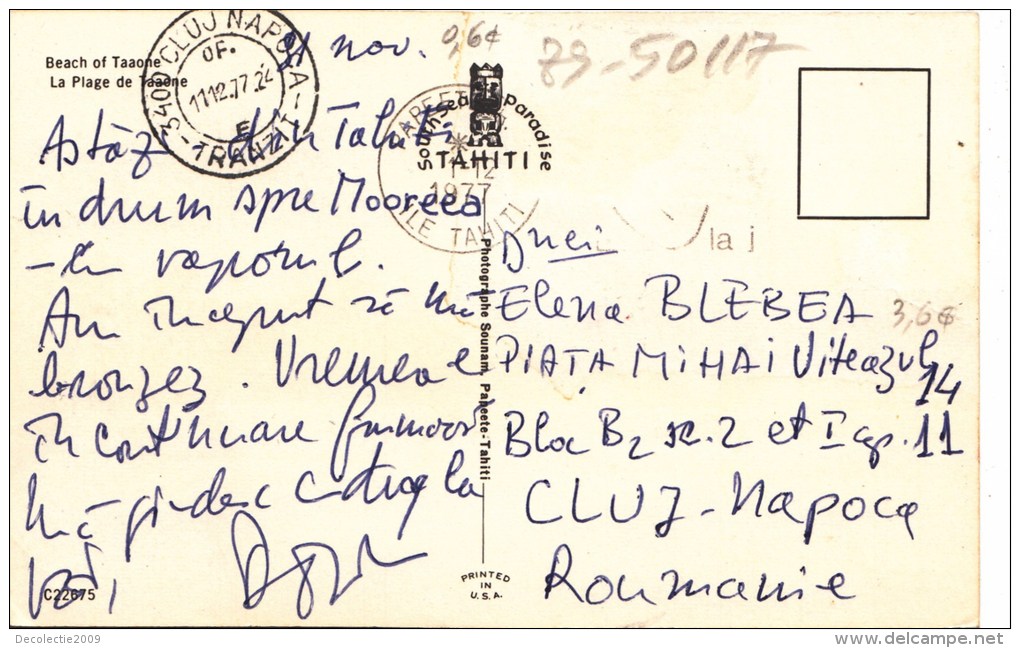 Beach of Taaone
La Plage de Taaone
3400 CLUJ NAPOCA
OF.
1112.77.24
E
TRANZIT
21 nov.
0,6€
79-50117
South Sea Paradise
TAHITI
PAPEETE
1-12
1977
ILE TAHITI
Astăzi în Tahiti
în drum spre Mooreea
- cu vaporul.
Am început să mă
bronzez. Vremea e
în continuare frumoasă
Mă gîndesc cu drag la
voi,
C22675
Photographe Sounam, Papeete-Tahiti
PRINTED
IN
U.S.A.
la j
Dnei
Elena BLEBEA
3,6€
PIAȚA MIHAI Viteazul
14
Bloc B2 sc. 2 et I ap. 11
CLUJ-Napoca
Roumanie
Decolectie2009
www.delcampe.net